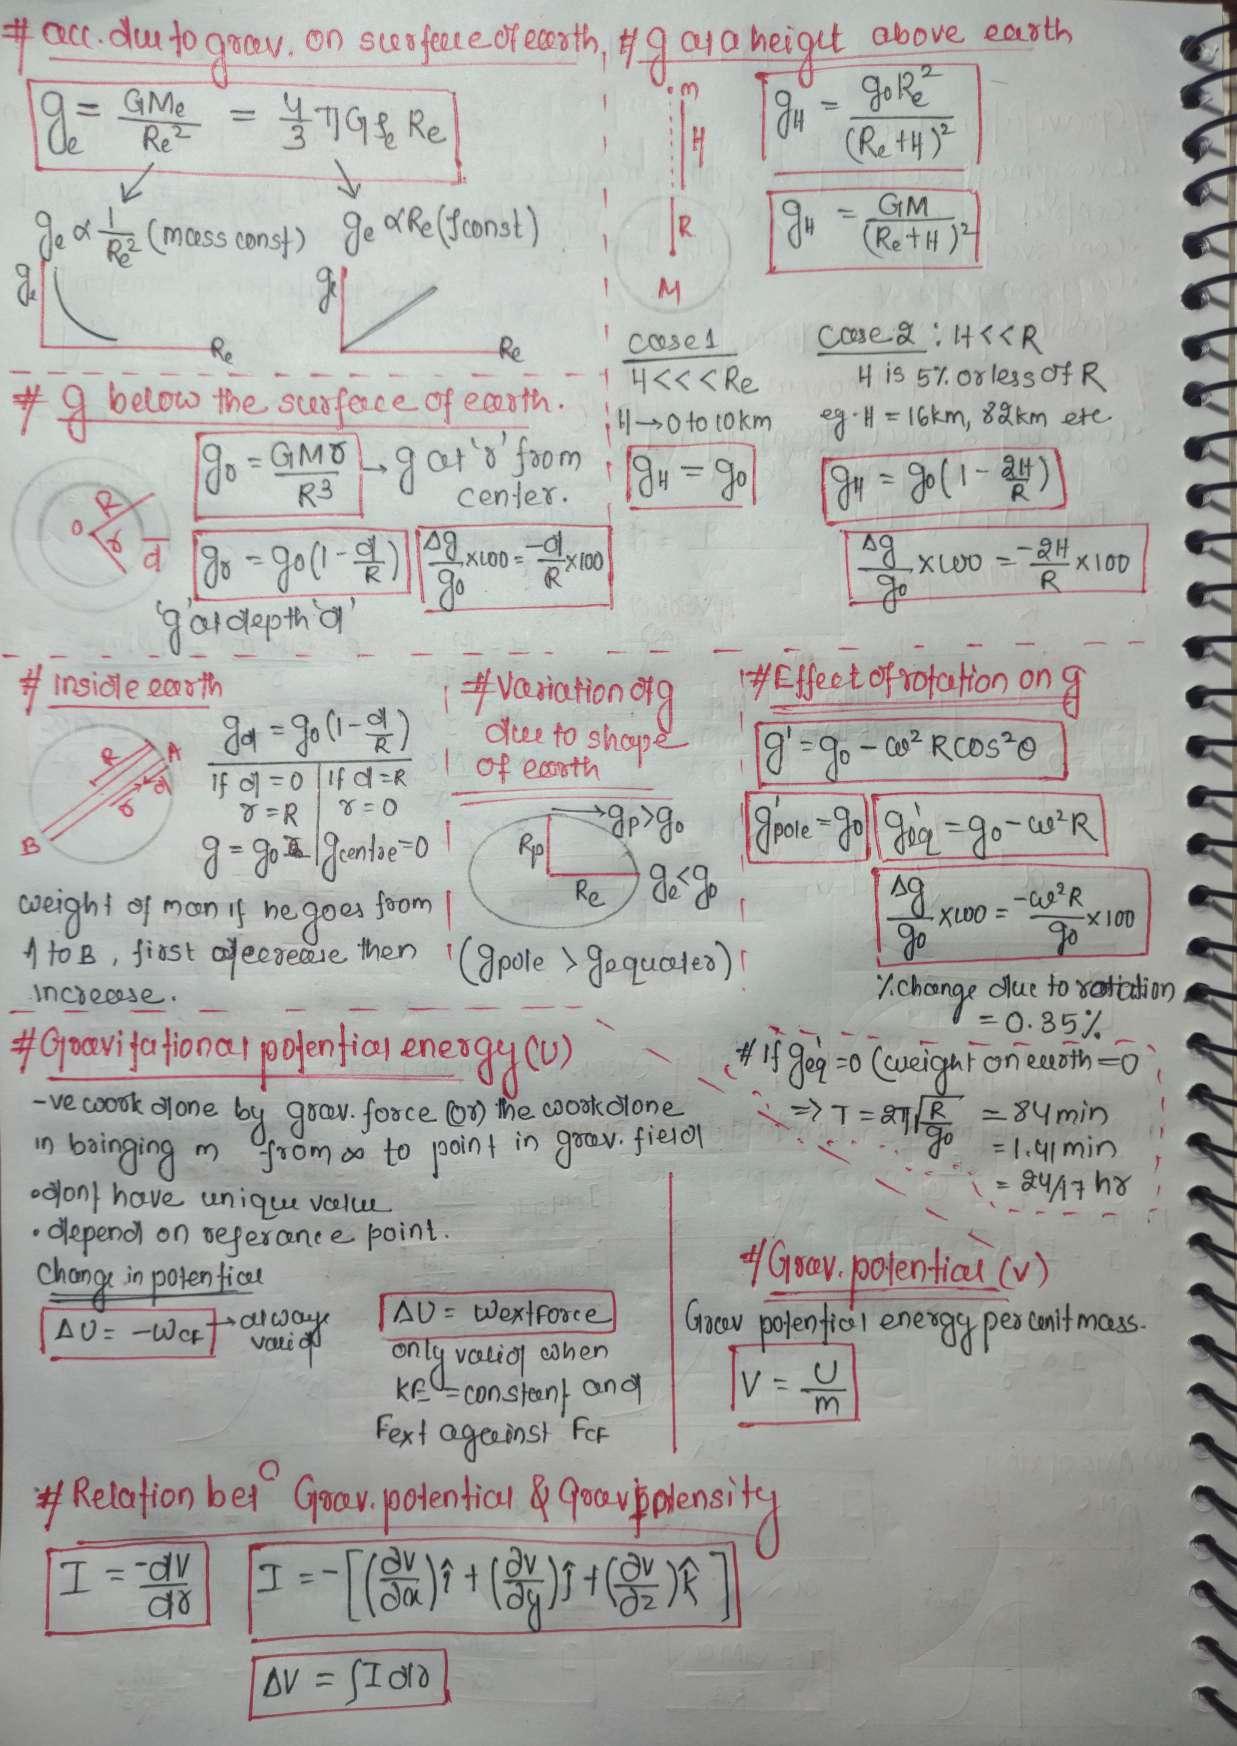 # acc. due to grav. on surface of earth,
g_e = GMe/Re² = 4/3 πGρ_e Re
g_e ∝ 1/Re² (mass const)
g_e ∝ Re (ρ const)
g_e
Re
g_e
Re
# g at a height above earth
m
H
R
M
g_H = g₀Re²/(Re+H)²
g_H = GM/(Re+H)²
case 1
H<<<Re
H→0 to 10km
g_H = g₀
Case 2 : H<<R
H is 5% or less of R
eg. H = 16km, 32km etc
g_H = g₀(1 - 2H/R)
Δg/g₀ ×100 = -2H/R ×100
# g below the surface of earth.
O
R
r
d
g_r = GMr/R³ → g at 'r' from
center.
g_r = g₀(1 - d/R)
Δg/g₀ ×100 = -d/R ×100
'g' at depth 'd'
# Inside earth
A
R
r
d
B
g_d = g₀(1 - d/R)
If d = 0 | If d = R
r = R | r = 0
g = g₀ | g centre = 0
weight of man if he goes from
A to B, first decrease then
increase.
# Variation of g
due to shape
of earth
gp>g₀
Rp
Re
ge<g₀
(gpole > gequator)
# Effect of rotation on g
g' = g₀ - ω²Rcos²θ
g'pole = g₀
g'eq = g₀ - ω²R
Δg/g₀ ×100 = -ω²R/g₀ ×100
% change due to rotation
= 0.35%
# If geq' = 0 (weight on earth = 0
⇒ T = 2π√(R/g₀) = 84 min
= 1.41 min
= 24/17 hr
# Gravitational potential energy (U)
-ve work done by grav. force (or) the work done
in bringing m from ∞ to point in grav. field
• dont have unique value
• depend on referance point.
Change in potential
ΔU = -W_CF → always
valid
ΔU = Wext force
only valid when
KE = constant and
Fext against F_CF
# Grav. potential (V)
Grav potential energy per unit mass.
V = U/m
# Relation betⁿ Grav. potential & Grav
I = -dV/dr
I = -[(∂V/∂x)î + (∂V/∂y)ĵ + (∂V/∂z)k̂]
ΔV = ∫I dr